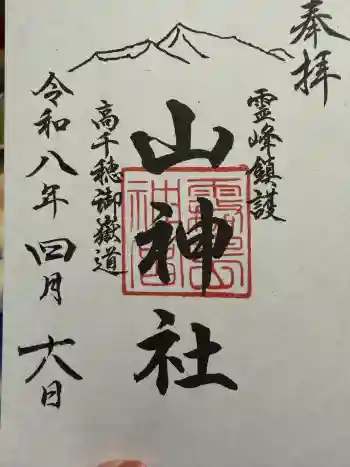 奉拝
霊峰鎮護
山神社
高千穂御嶽道
令和八年四月日